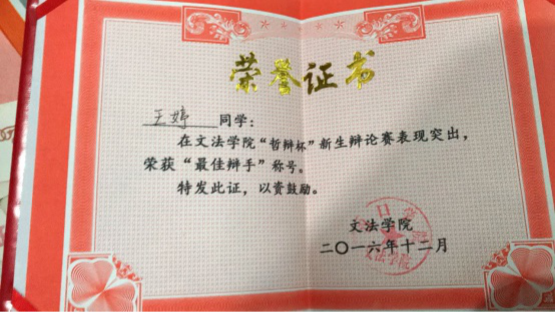 荣誉证书
王婷 同学：
在文法学院“哲辩杯”新生辩论赛表现突出，
荣获“最佳辩手”称号。
特发此证，以资鼓励。
文法学院
二〇一六年十二月
文法学院